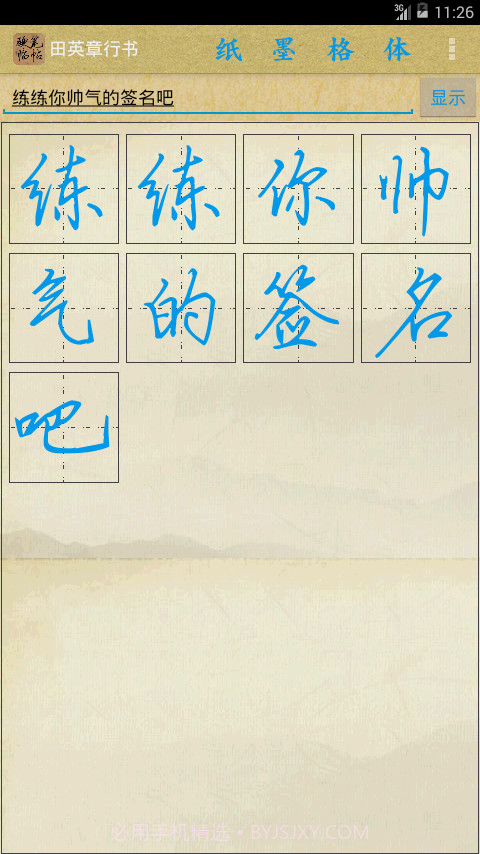 3G 11:26
硬笔临帖 田英章行书 纸 墨 格 体
练练你帅气的签名吧 显示
练练你帅
气的签名
吧
必用手机精选 • BYJSJXY.COM